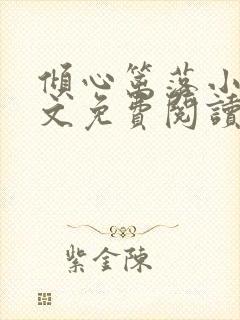 傾心篱落小
文免費閱讀
紫金陳